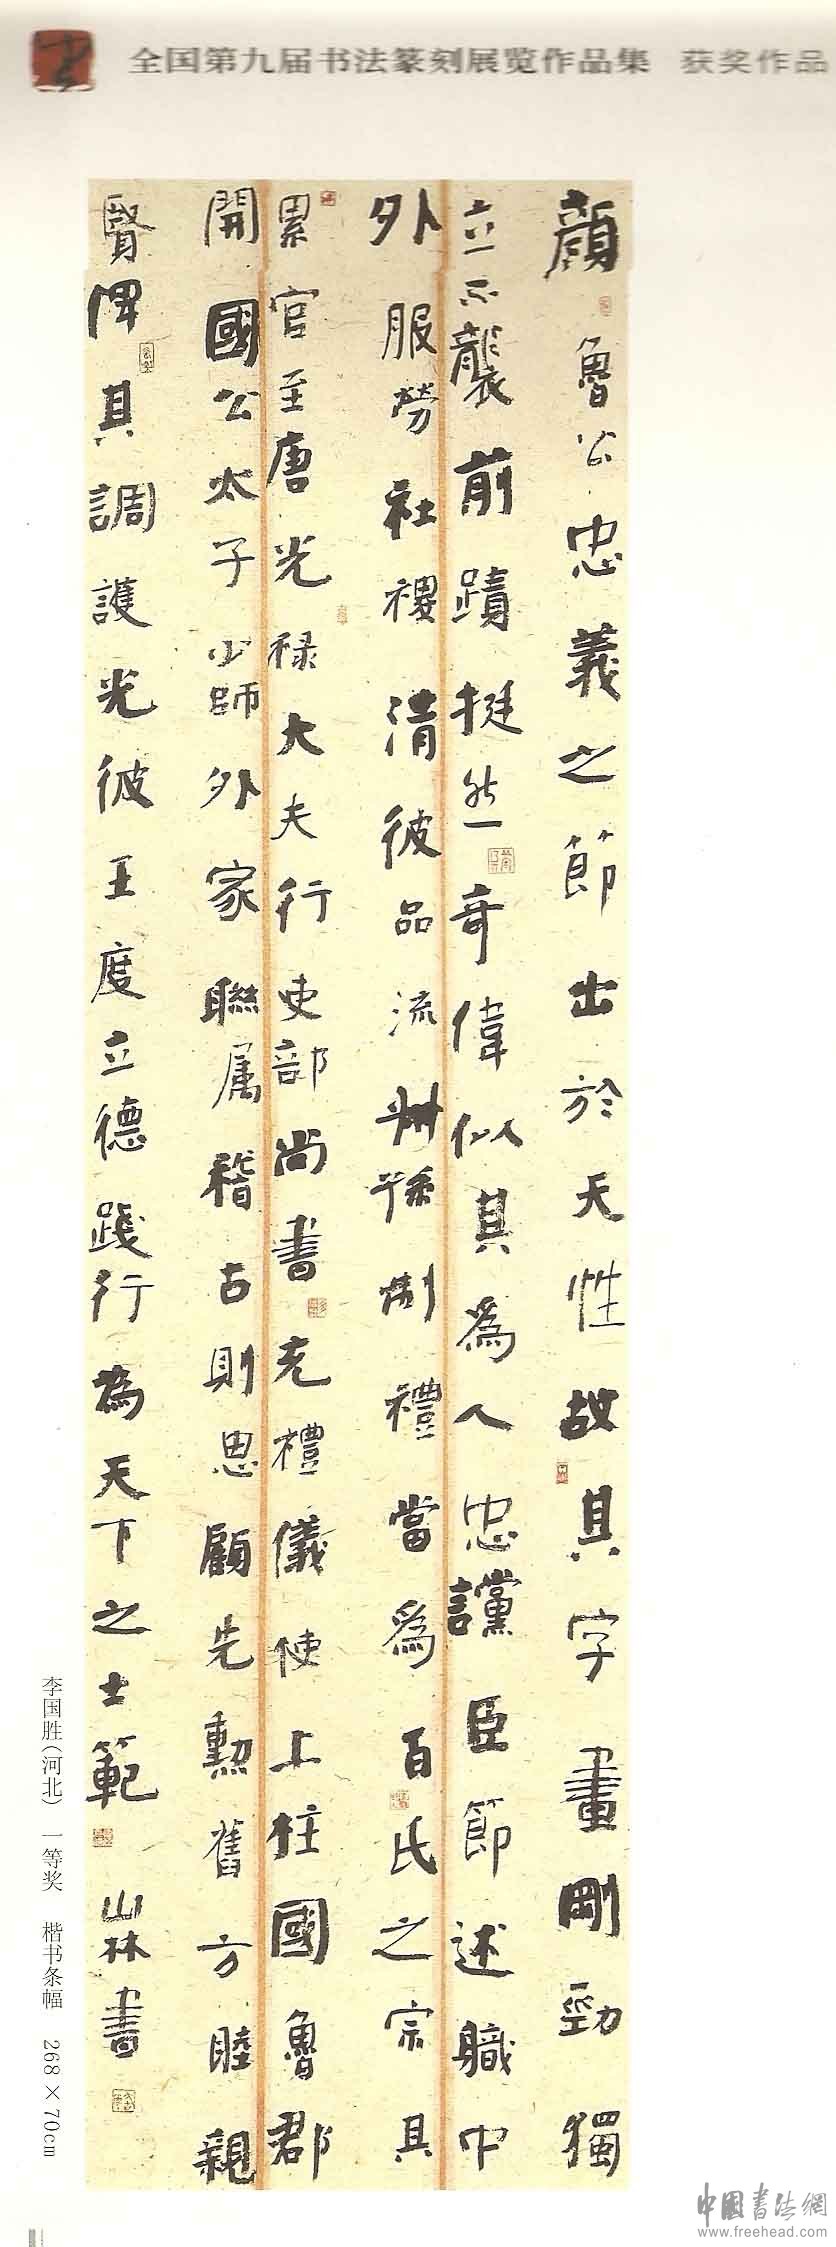 全国第九届书法篆刻展览作品集 获奖作品
顔魯公忠義之節出於天性故其字畫剛勁獨
立不襲前蹟挺然奇偉似其為人忠讜臣節述職中
外服勞社稷清彼品流叔孫制禮當為百氏之宗其
累官至唐光禄大夫行吏部尚書充禮儀使上柱國魯郡
開國公太子少師外家聯属稽古則思顧先勲舊方睦親
賢俾其調護光彼王度立德踐行為天下之士範 山林書
李国胜(河北) 一等奖 楷书条幅 268×70cm
中国书法網
www.freehead.com